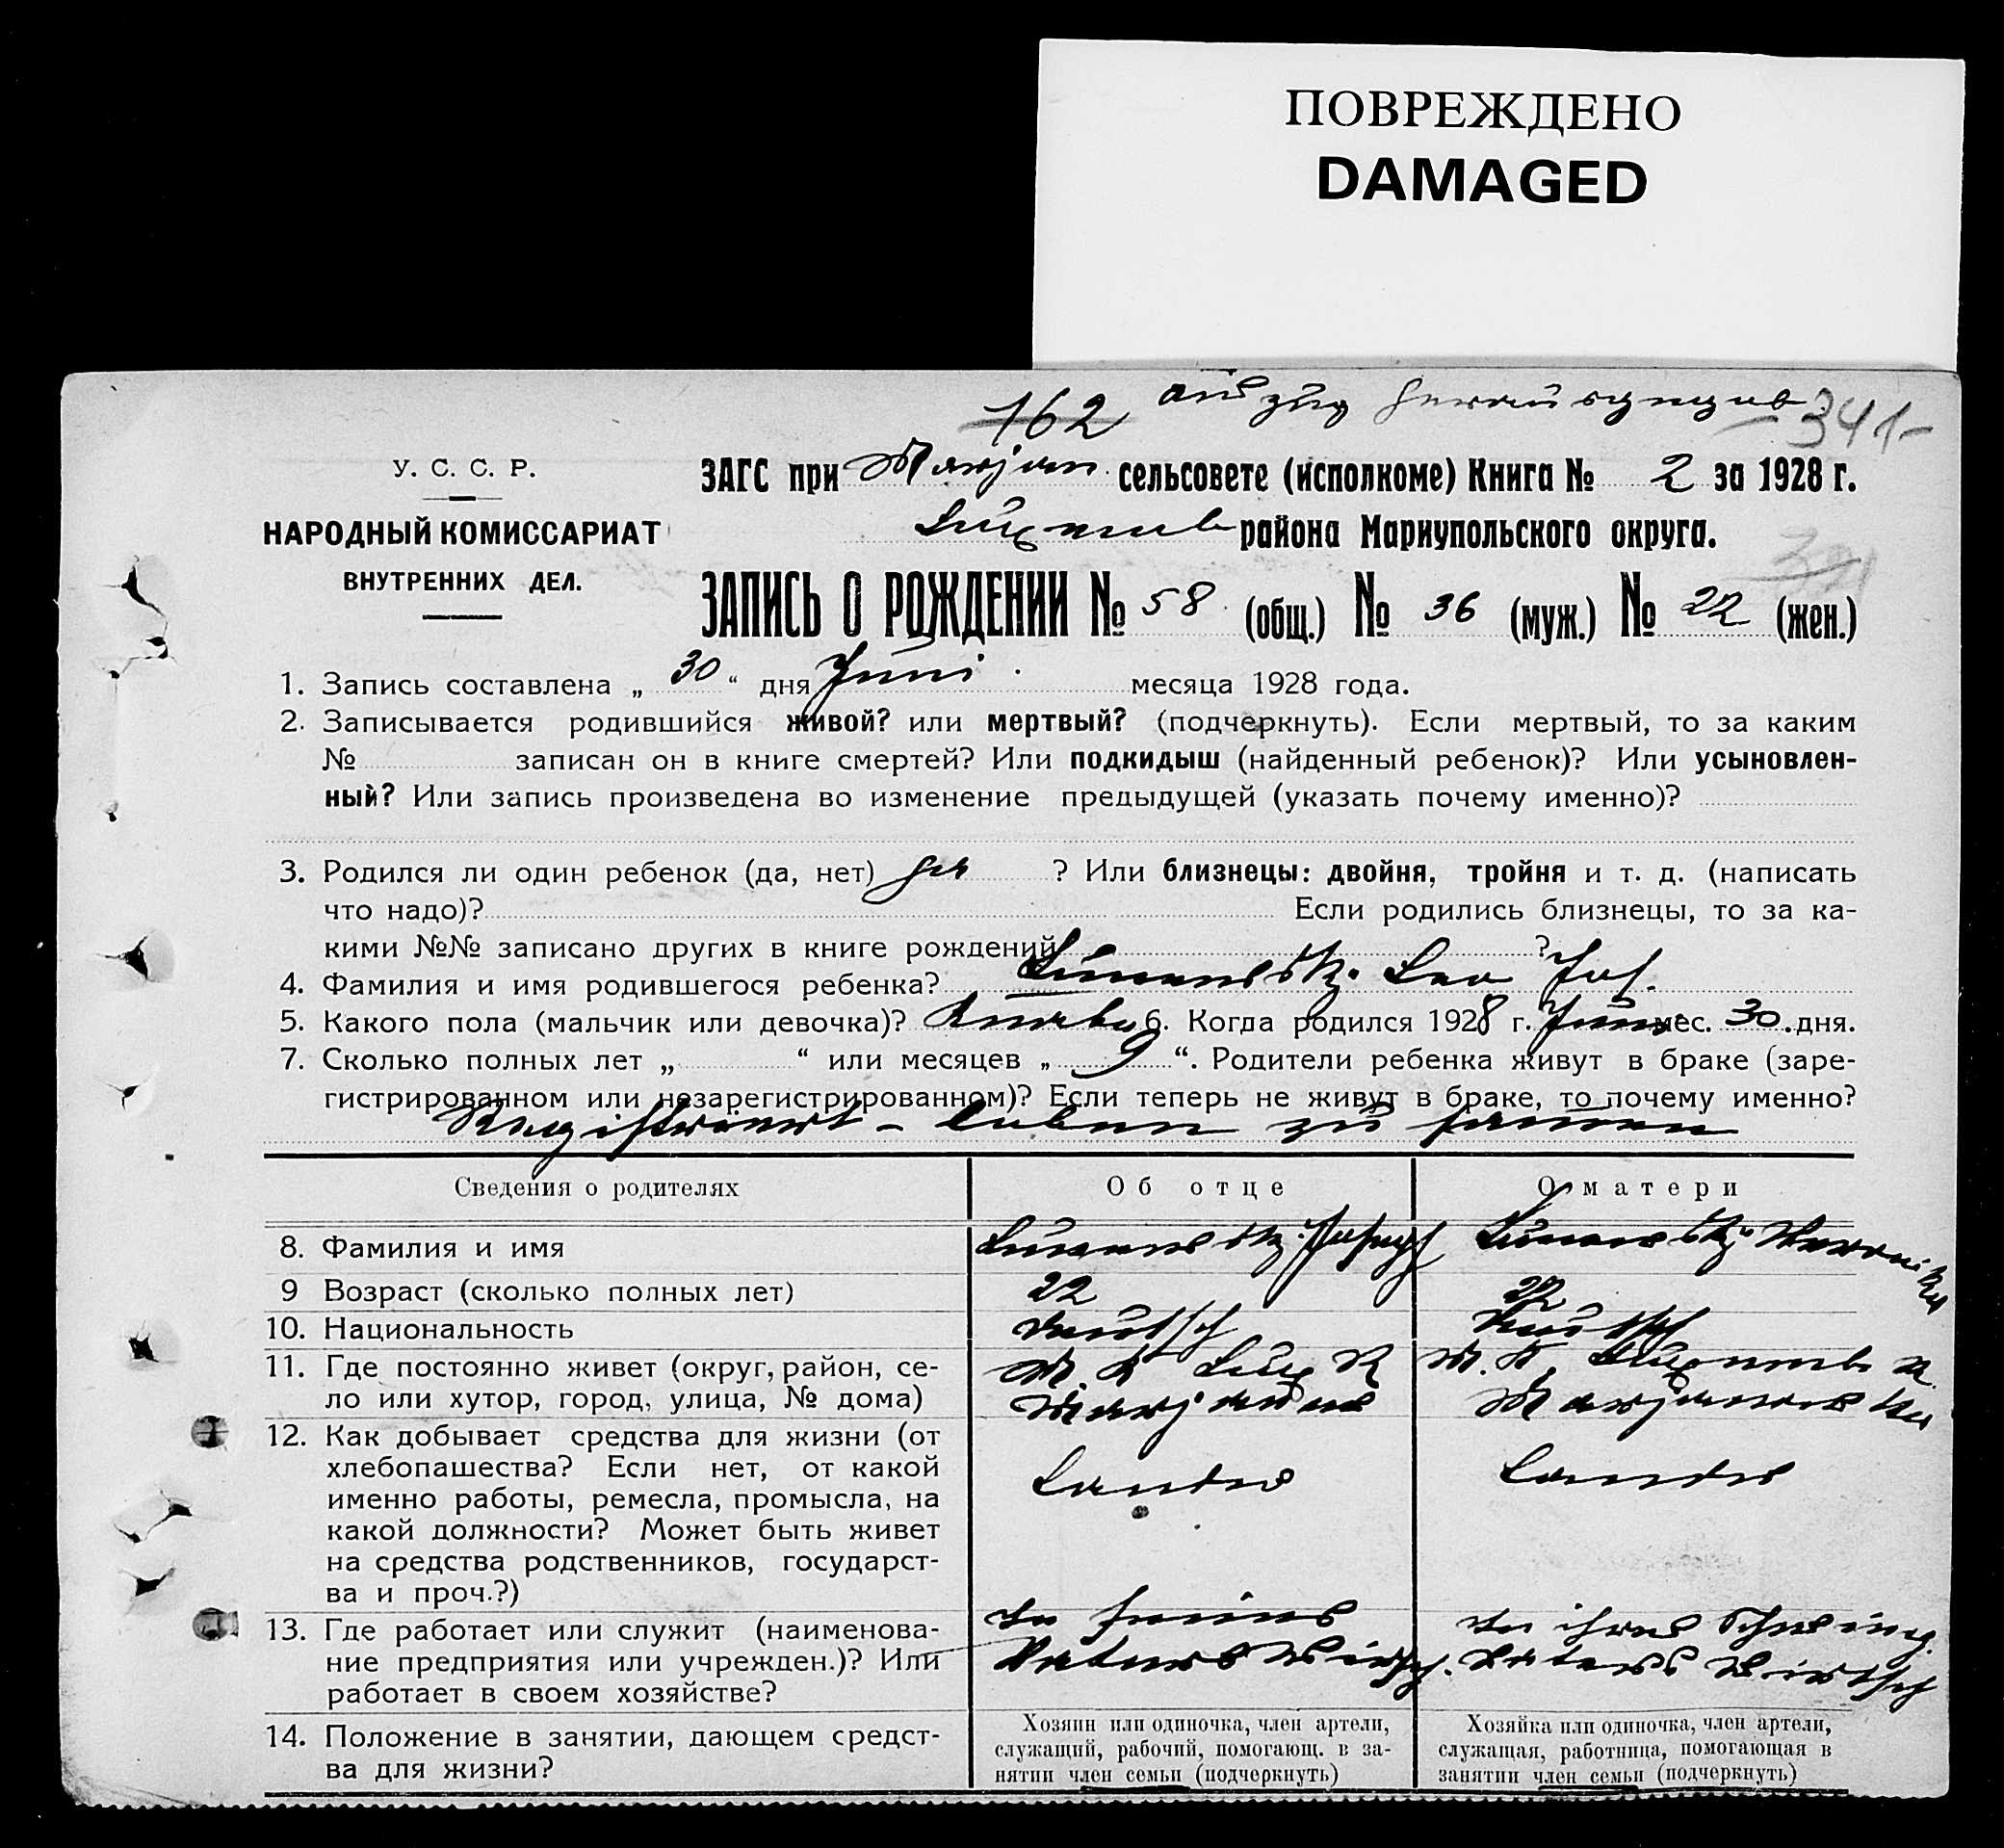 ПОВРЕЖДЕНО
DAMAGED
162 Auszug herausgegeb. 341
У. С. С. Р.
ЗАГС при Marjan. сельсовете (исполкоме) Книга № 2 за 1928 г.
НАРОДНЫЙ КОМИССАРИАТ
района Мариупольского округа.
ВНУТРЕННИХ ДЕЛ.
ЗАПИСЬ О РОЖДЕНИИ № 58 (общ.) № 36 (муж.) № 22 (жен.)
1. Запись составлена „ 30 “ дня Juni месяца 1928 года.
2. Записывается родившийся живой? или мертвый? (подчеркнуть). Если мертвый, то за каким
№ записан он в книге смертей? Или подкидыш (найденный ребенок)? Или усыновлен-
ный? Или запись произведена во изменение предыдущей (указать почему именно)?
3. Родился ли один ребенок (да, нет) ? Или близнецы: двойня, тройня и т. д. (написать
что надо)? Если родились близнецы, то за ка-
кими №№ записано других в книге рождений ?
4. Фамилия и имя родившегося ребенка? Leo Jos.
5. Какого пола (мальчик или девочка)? Knabe 6. Когда родился 1928 г. Juni мес. 30. дня.
7. Сколько полных лет „ “ или месяцев „ 9 “. Родители ребенка живут в браке (заре-
гистрированном или незарегистрированном)? Если теперь не живут в браке, то почему именно?
Registriert – leben zusammen
Сведения о родителях Об отце О матери
8. Фамилия и имя Joseph Veronika
9 Возраст (сколько полных лет) 22 22
10. Национальность Deutsch Deutsch
11. Где постоянно живет (округ, район, се- M. K. Lux R M. K. R.
ло или хутор, город, улица, № дома)
12. Как добывает средства для жизни (от
хлебопашества? Если нет, от какой Landw Landw
именно работы, ремесла, промысла, на
какой должности? Может быть живет
на средства родственников, государст-
ва и проч.?)
13. Где работает или служит (наименова- In seines In ihres Schwieg.
ние предприятия или учрежден.)? Или Vaters Wirtsch. Vaters Wirtsch
работает в своем хозяйстве?
14. Положение в занятии, дающем средст-
ва для жизни?
Хозяин или одиночка, член артели,
служащий, рабочий, помогающ. в за-
нятии член семьи (подчеркнуть)
Хозяйка или одиночка, член артели,
служащая, работница, помогающая в
занятии член семьи (подчеркнуть)